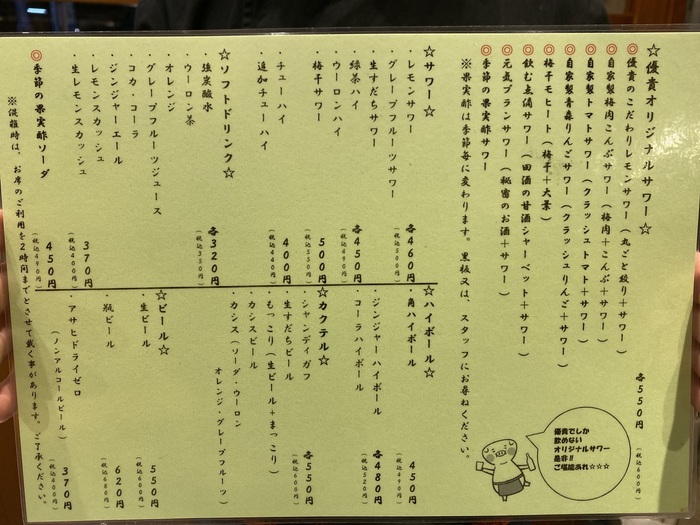 ☆優貴オリジナルサワー☆
◎優貴のこだわりレモンサワー（丸ごと絞り＋サワー）
◎自家製梅肉こんぶサワー（梅肉＋こんぶ＋サワー）
◎自家製トマトサワー（クラッシュトマト＋サワー）
◎自家製青森りんごサワー（クラッシュりんご＋サワー）
◎梅干モヒート（梅干＋大葉）
◎飲む点滴サワー（田酒の甘酒シャーベット＋サワー）
◎元気ブランサワー（秘密のお酒＋サワー）
◎季節の果実酢サワー
各550円
（税込600円）
※果実酢は季節毎に変わります。黒板又は、スタッフにお尋ねください。
優貴でしか
飲めない
オリジナルサワー
是非!!
ご堪能あれ☆☆☆
☆サワー☆
・レモンサワー
・グレープフルーツサワー
各460円
（税込500円）
・生すだちサワー
・緑茶ハイ
・ウーロンハイ
各450円
（税込490円）
・梅干サワー
500円
（税込550円）
・チューハイ
400円
（税込440円）
・追加チューハイ
☆ソフトドリンク☆
・強炭酸水
・ウーロン茶
・オレンジ
・グレープフルーツジュース
・コカ・コーラ
・ジンジャーエール
各320円
（税込350円）
・レモンスカッシュ
・生レモンスカッシュ
370円
（税込400円）
◎季節の果実酢ソーダ
450円
（税込490円）
☆ハイボール☆
・角ハイボール
450円
（税込490円）
・ジンジャーハイボール
・コーラハイボール
各480円
（税込520円）
☆カクテル☆
・シャンディガフ
・生すだちビール
・もっこり（生ビール＋まっこり）
・カシスビール
・カシス（ソーダ・ウーロン
オレンジ・グレープフルーツ）
各550円
（税込600円）
☆ビール☆
・生ビール
550円
（税込600円）
・瓶ビール
620円
（税込680円）
・アサヒドライゼロ
（ノンアルコールビール）
370円
（税込400円）
※混雑時は、お席のご利用を2時間までとさせて戴く事があります。ご了承ください。